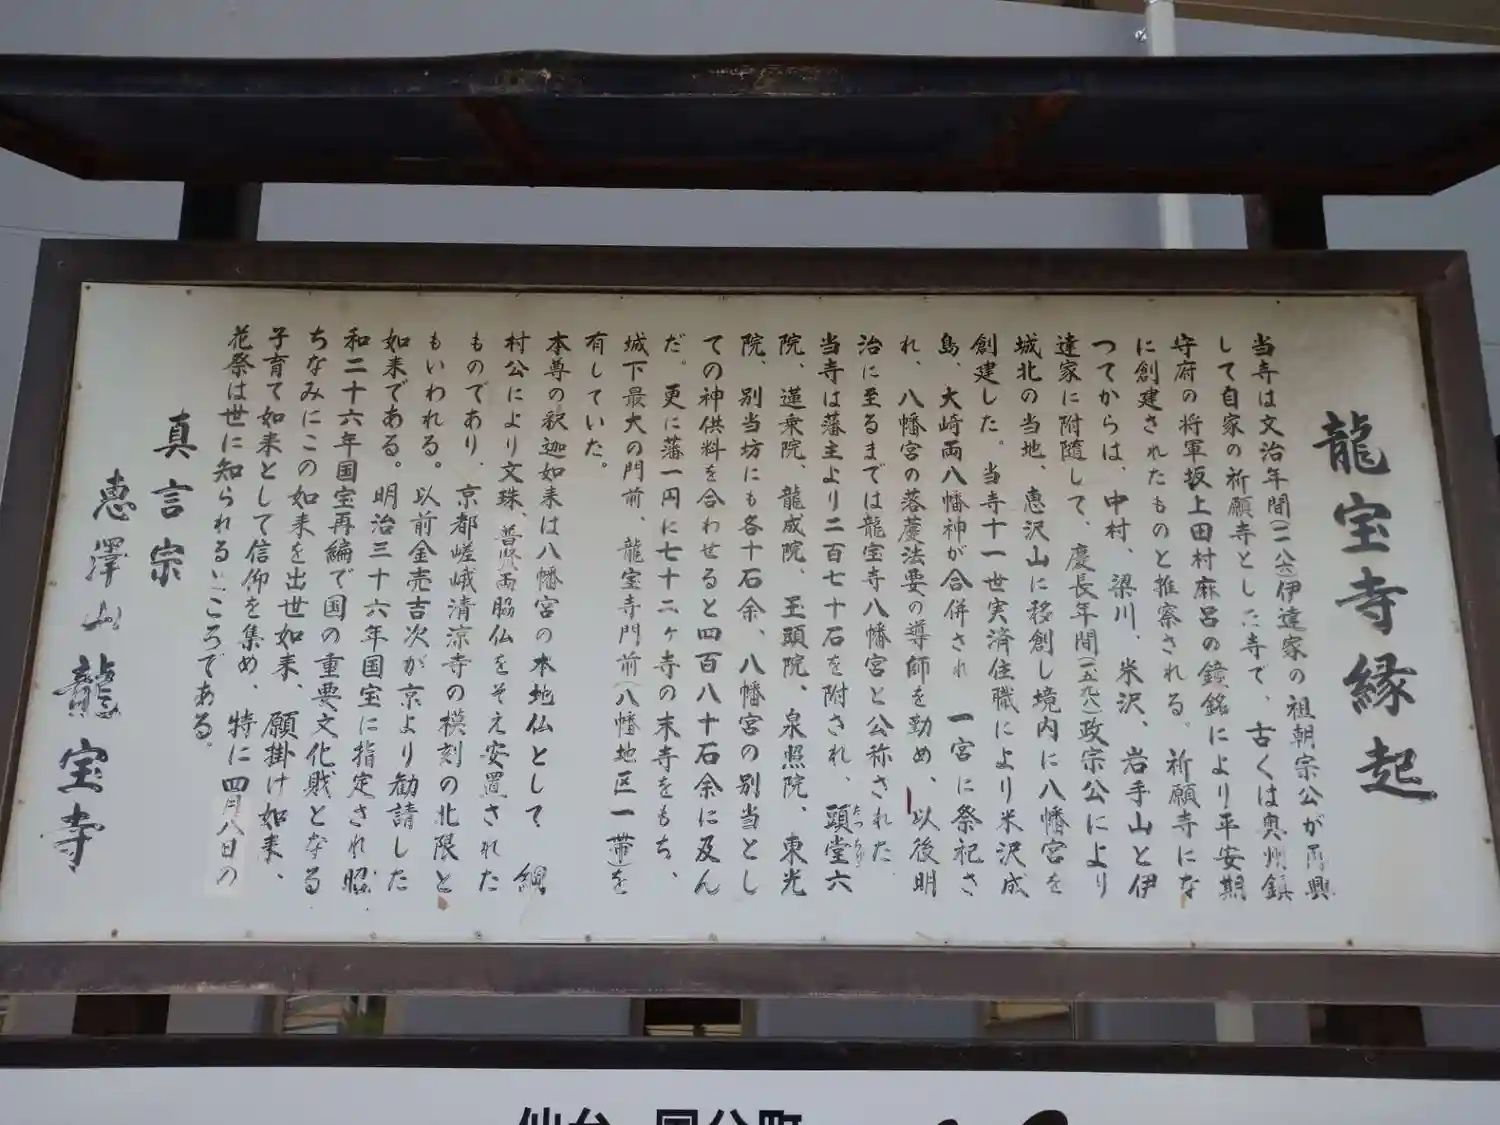 龍宝寺縁起
当寺は文治年間(一一八六)伊達家の祖朝宗公が再興
して自家の祈願寺とした寺で、古くは奥州鎮
守府の将軍坂上田村麻呂の鐘銘により平安期
に創建されたものと推察される。祈願寺にな
つてからは、中村、梁川、米沢、岩手山と伊
達家に附随して、慶長年間(一五九八)政宗公により
城北の当地、恵沢山に移創し境内に八幡宮を
創建した。当寺十一世実済住職により米沢成
島、大崎両八幡神が合併され一宮に祭祀さ
れ、八幡宮の落慶法要の導師を勤め、以後明
治に至るまでは龍宝寺八幡宮と公称された
当寺は藩主より二百七十石を附され、頭堂六
院、蓮乗院、龍成院、玉頭院、泉照院、東光
院、別当坊にも各十石余、八幡宮の別当とし
ての神供料を合わせると四百八十石余に及ん
だ。更に藩一円に七十二ヶ寺の末寺をもち、
城下最大の門前、龍宝寺門前(八幡地区一帯)を
有していた。
本尊の釈迦如来は八幡宮の本地仏として 綱
村公により文珠、普賢両脇仏をそえ安置された
ものであり、京都嵯峨清凉寺の模刻の北限と
もいわれる。以前金売吉次が京より勧請した
如来である。明治三十六年国宝に指定され昭
和二十六年国宝再編で国の重要文化財となる
ちなみにこの如来を出世如来、願掛け如来、
子育て如来として信仰を集め、特に四月八日の
花祭は世に知られるところである。
真言宗
恵澤山龍宝寺
仙台 国分町